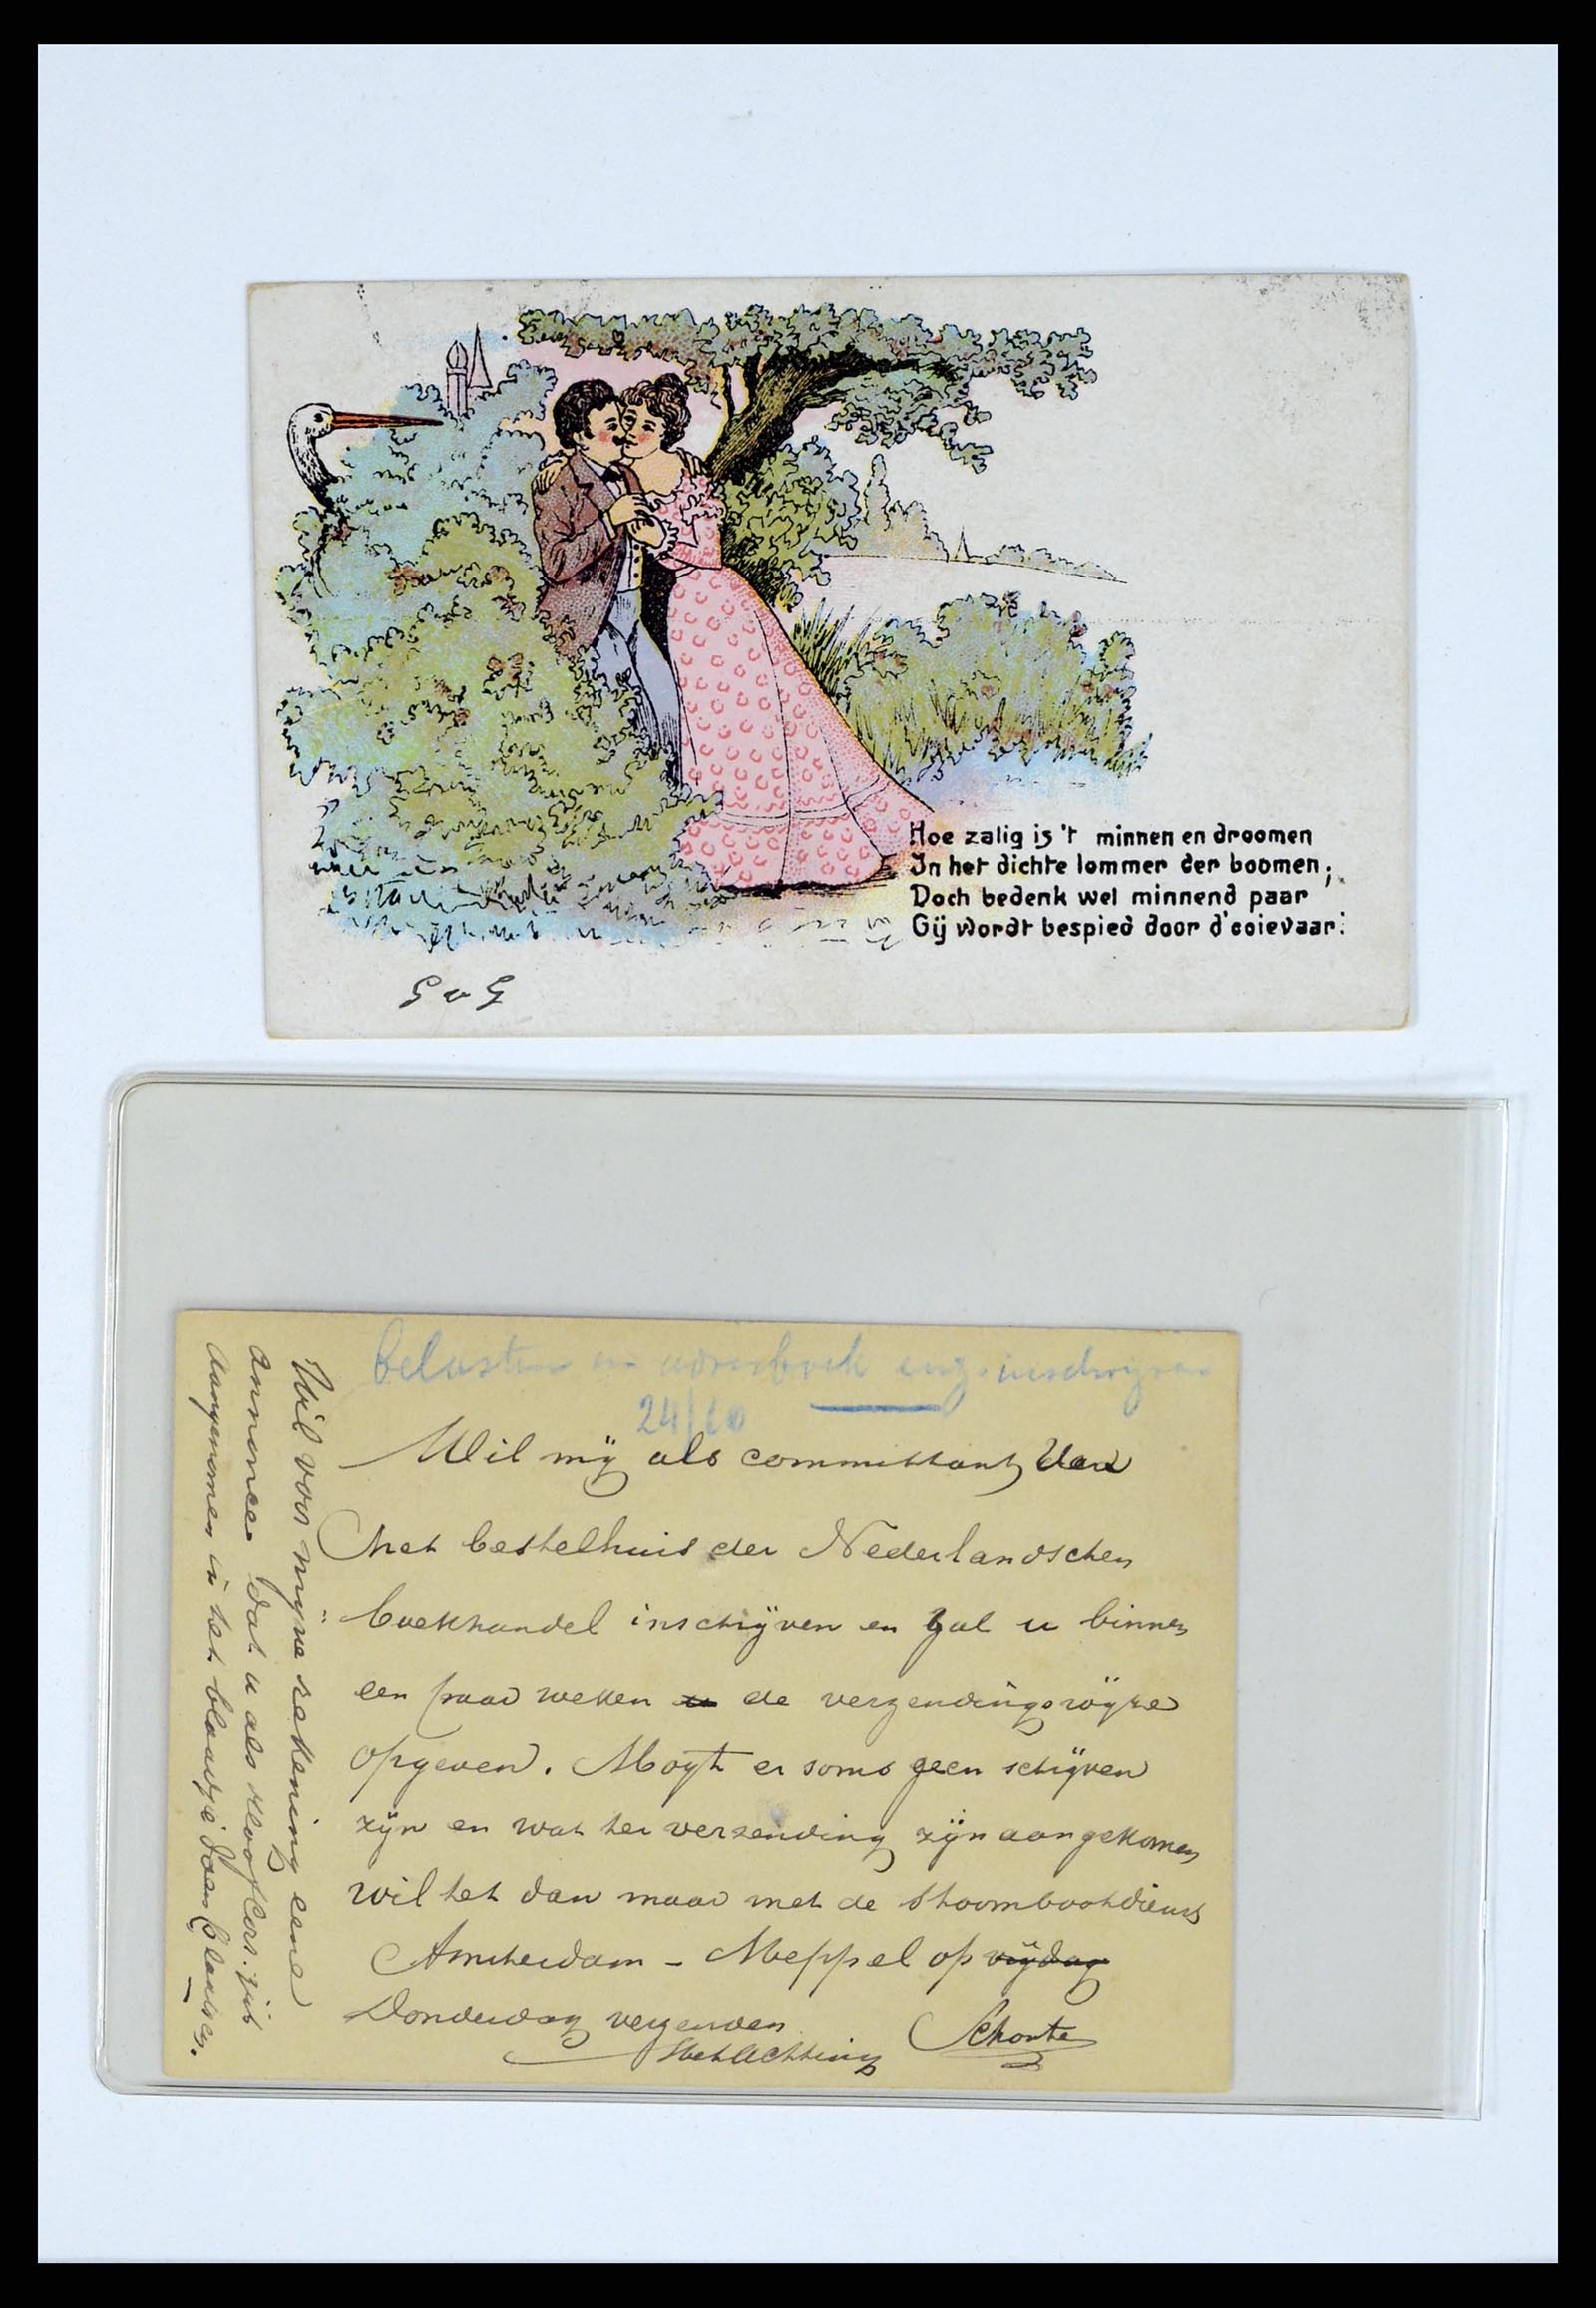 Hoe zalig is 't minnen en droomen
In het dichte lommer der boomen;
Doch bedenk wel minnend paar
Gij wordt bespied door d'ooievaar.
G v G
belasten en adresboek enz. inschrijven
24/10
Wil mÿ als committant van
het bestelhuis der Nederlandschen
boekhandel inschÿven en zal u binnen
een paar weken de verzendingswÿze
opgeven. Mogt er soms geen schÿven
zÿn en wat ter verzending zÿn aangekomen
wil het dan maar met de stoombootdienst
Amsterdam - Meppel op vrÿdag
Donderdag verzenden
Met Achting Schoute
Wil voor mÿne rekening eene
annonce dat u als
aangenomen in het blaadje